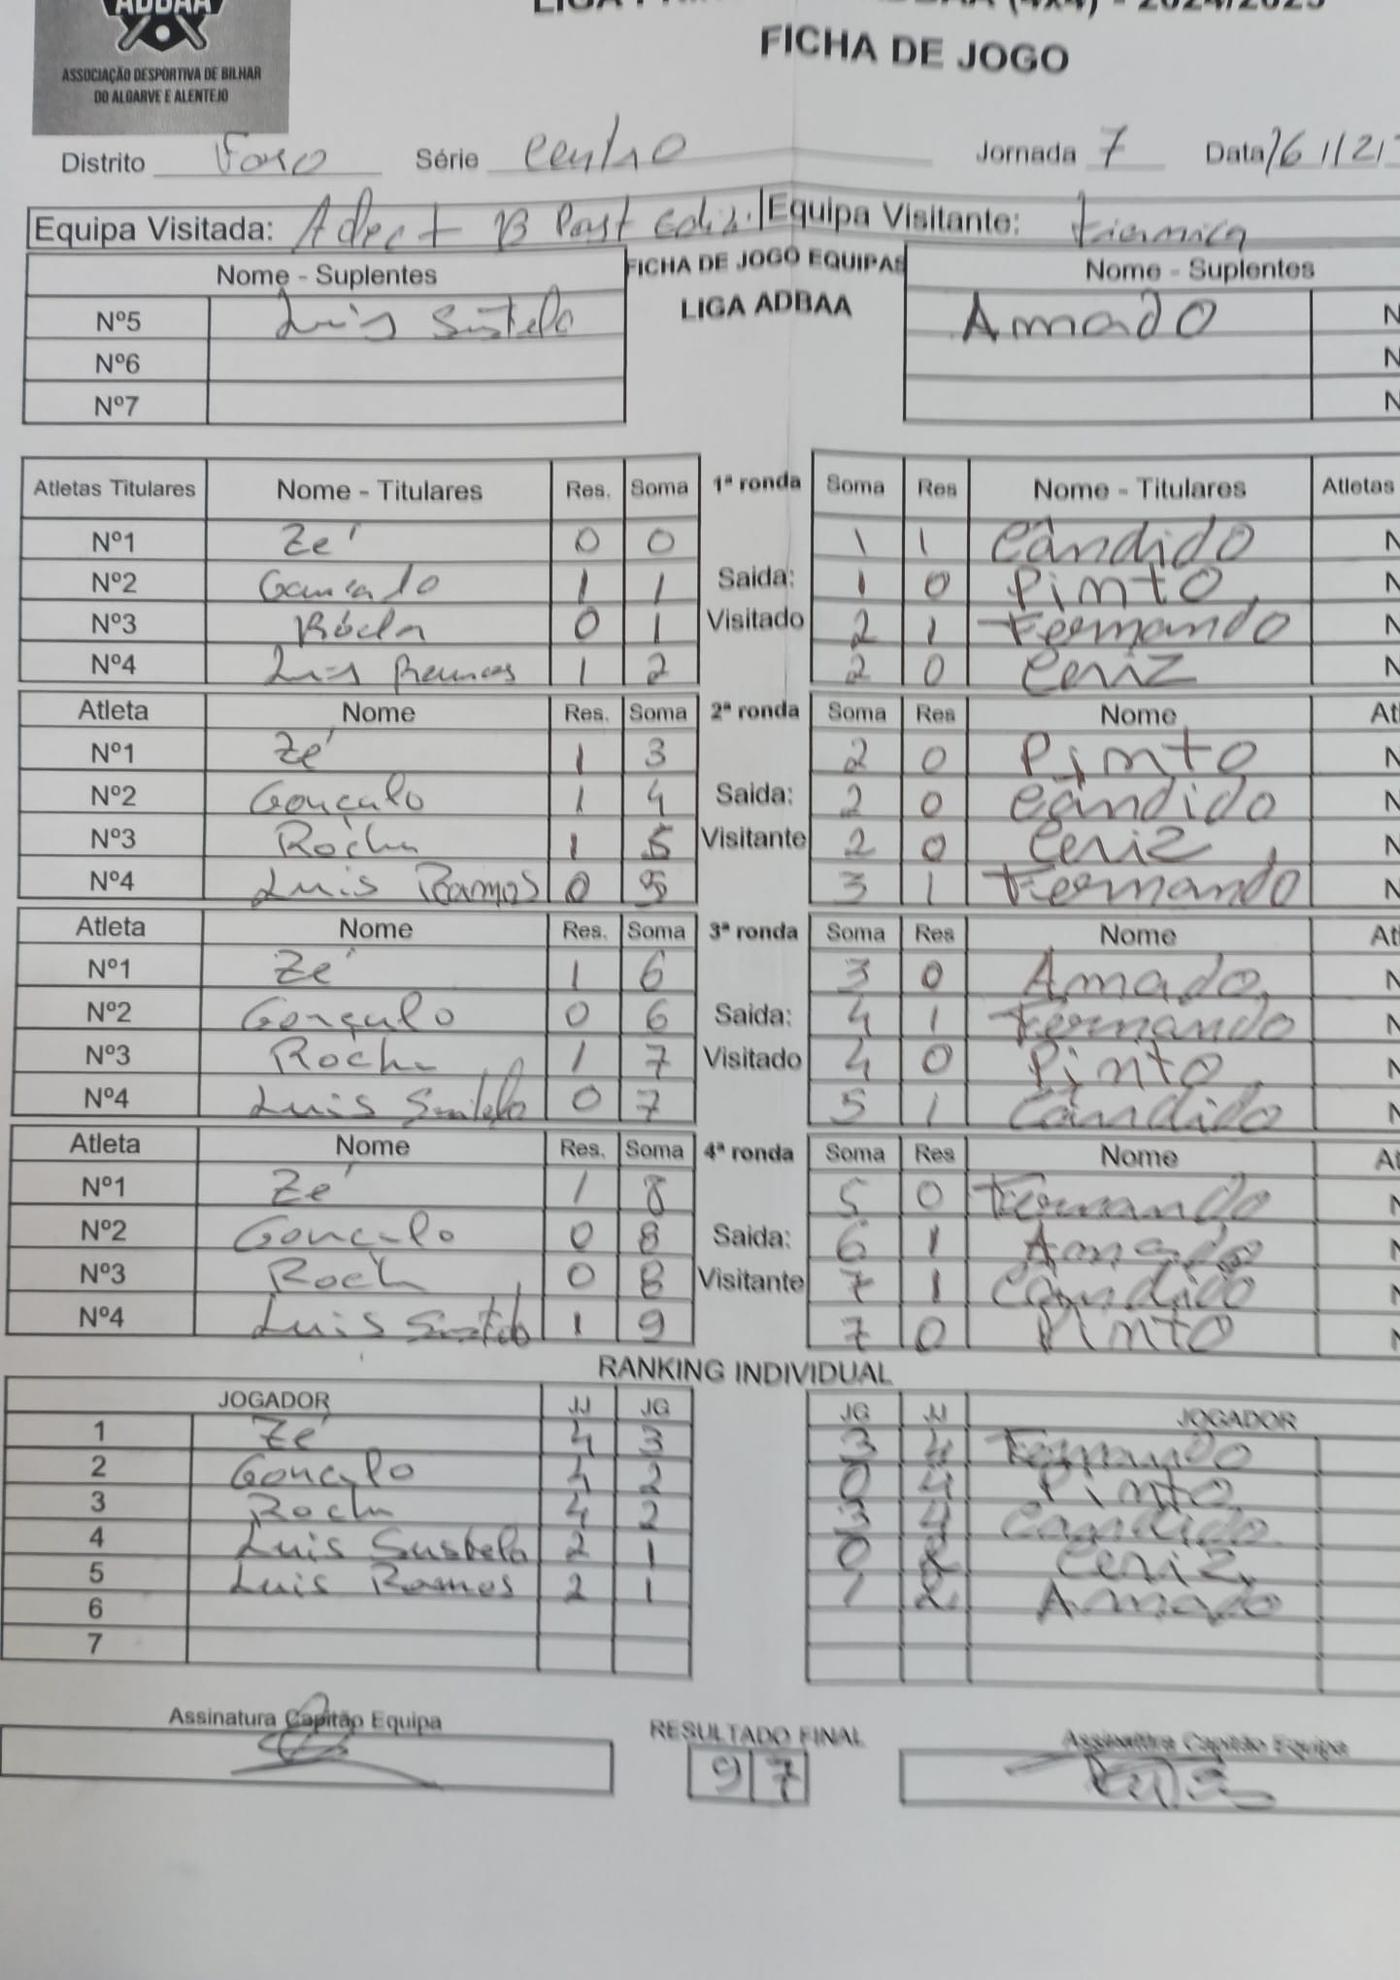 ADBAA
ASSOCIAÇÃO DESPORTIVA DE BILHAR
DO ALGARVE E ALENTEJO
(4x4) - 2024/2025
FICHA DE JOGO
Distrito Faro Série Centro Jornada 7 Data
Equipa Visitada: Equipa Visitante:
Nome - Suplentes FICHA DE JOGO EQUIPAS Nome - Suplentes
LIGA ADBAA
Nº5 Luis Sustelo Amado N
Nº6 N
Nº7 N
Atletas Titulares Nome - Titulares Res. Soma 1ª ronda Soma Res Nome - Titulares Atletas
Nº1 Zé 0 0 1 1 Cândido N
Nº2 Gonçalo 1 1 Saida: 1 0 Pinto N
Nº3 Rócha 0 1 Visitado 2 1 Fernando N
Nº4 Luis Ramos 1 2 2 0 Ceriz N
Atleta Nome Res. Soma 2ª ronda Soma Res Nome At
Nº1 Zé 1 3 2 0 Pinto N
Nº2 Gonçalo 1 4 Saida: 2 0 Cândido N
Nº3 Rocha 1 5 Visitante 2 0 Ceriz N
Nº4 Luis Ramos 0 5 3 1 Fernando N
Atleta Nome Res. Soma 3ª ronda Soma Res Nome At
Nº1 Zé 1 6 3 0 Amado N
Nº2 Gonçalo 0 6 Saida: 4 1 Fernando N
Nº3 Rocha 1 7 Visitado 4 0 Pinto N
Nº4 Luis Sustelo 0 7 5 1 Cândido N
Atleta Nome Res. Soma 4ª ronda Soma Res Nome At
Nº1 Zé 1 8 5 0 Fernando N
Nº2 Gonçalo 0 8 Saida: 6 1 Amado N
Nº3 Roch 0 8 Visitante 7 1 Cândido N
Nº4 Luis Sustelo 1 9 7 0 Pinto N
RANKING INDIVIDUAL
JOGADOR JJ JG JG JJ JOGADOR
1 Zé 4 3 3 4 Fernando
2 Gonçalo 4 2 0 4 Pinto
3 Rocha 4 2 3 4 Candido
4 Luis Sustelo 2 1 0 2 Ceriz
5 Luis Ramos 2 1 1 2 Amado
6
7
Assinatura Capitão Equipa RESULTADO FINAL Assinatura Capitão Equipa
9 7